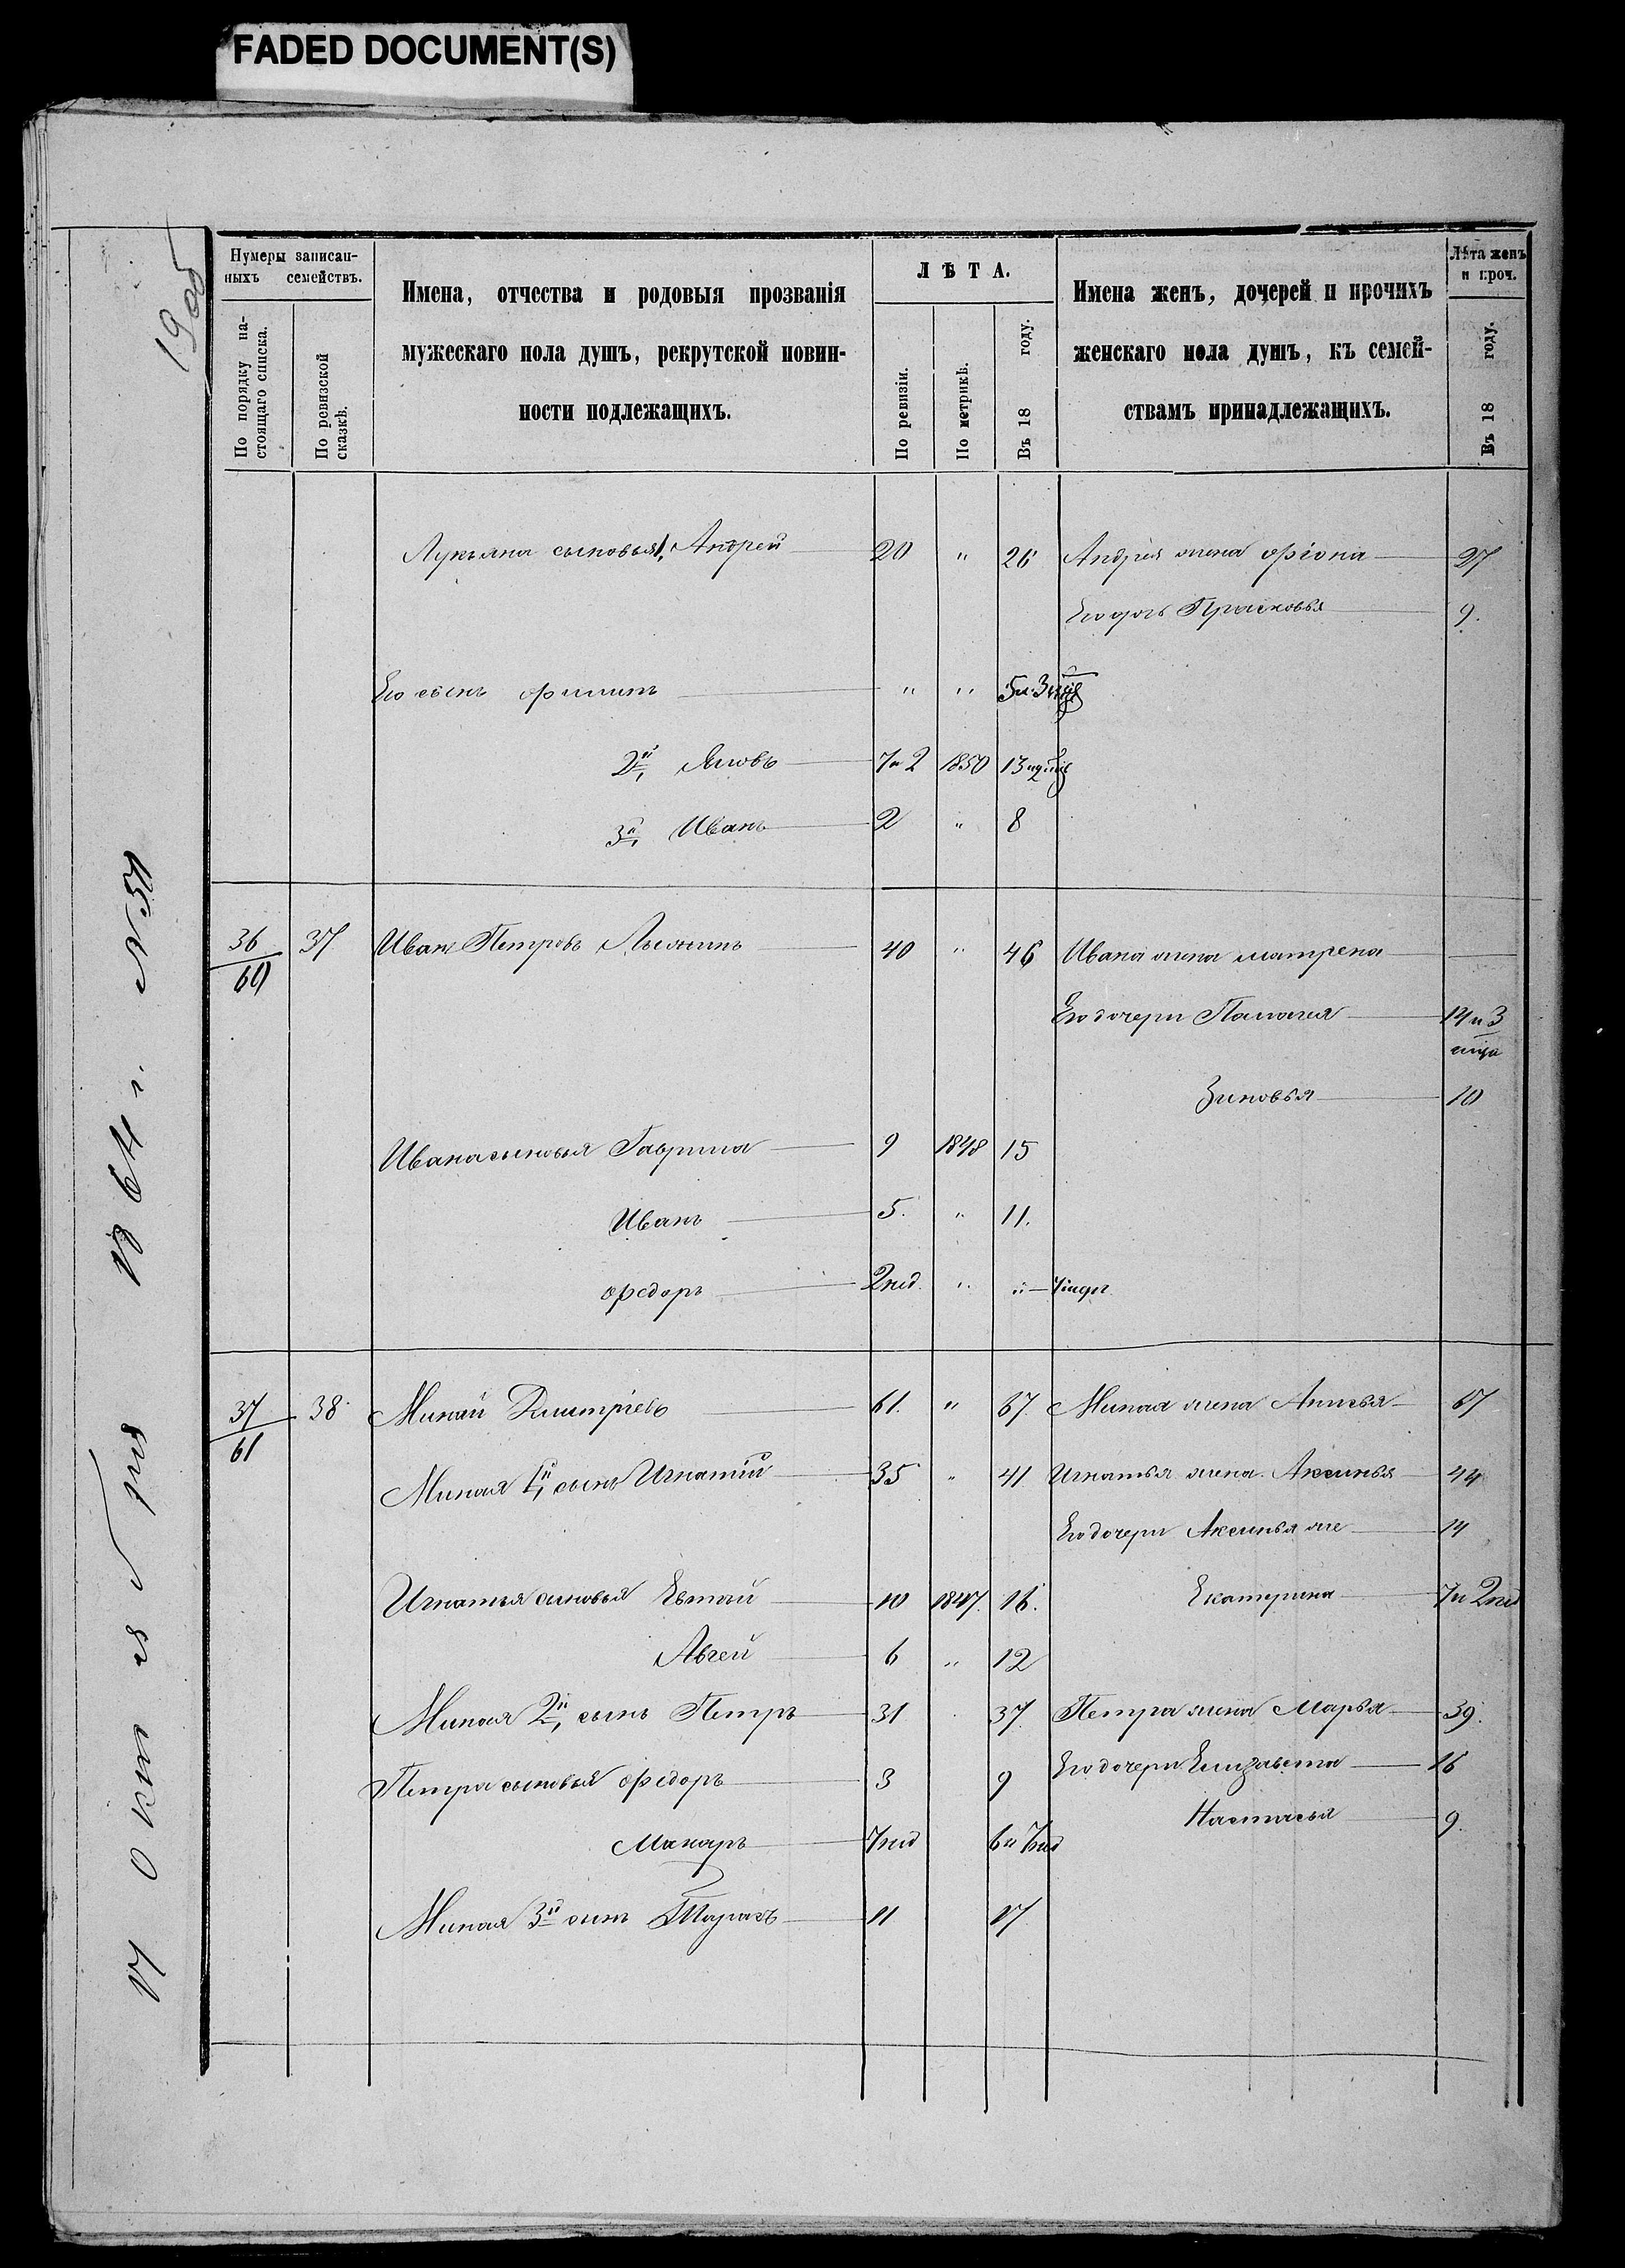 FADED DOCUMENT(S)
Нумеры записан-
ныхъ семействъ.
По порядку на-
стоящаго списка.
По ревизской
сказкѣ.
Имена, отчества и родовыя прозванія
мужескаго пола душъ, рекрутской повин-
ности подлежащихъ.
ЛѢТА.
По ревизіи.
По метрикѣ.
Въ 18 году.
Имена женъ, дочерей и прочихъ
женскаго пола душъ, къ семей-
ствамъ принадлежащихъ.
Лѣта женъ
и проч.
Въ 18 году.
17 октября 1864 г. №51
Лукьяна сыновья 1, Андрей 20 " 26 Андрея жена Фіона 27
Его дочь Прасковья 9.
Его сынъ Филипъ " "
2й, Яковъ 7 и 2 1850 13
3й, Иванъ 2 " 8
36/60 37 Иванъ Петровъ 40 " 46 Ивана жена Матрена
Его дочери Палагея 14 и 3
Зиновья 10
Ивана сыновья Гаврила 9 1848 15
Иванъ 5. " 11.
Федоръ 2нед. " "
37/61 38 Минай Дмитріевъ 61. " 67. Миная жена Анисья 67
Миная 1й, сынъ Игнатій 35 " 41 Игнатья жена Аксинья 44
Его дочери Аксинья же 14
Игнатья сыновья 10 1847. 16. Екатерина 7 и 2нед
Авгей 6 " 12
Миная 2й, сынъ Петръ 31 37. Петра жена Марья 39.
Петра сыновья Федоръ 3 9 Его дочери Елизавета 16
Настасья 9.
Макаръ 7нед 6 и 7нед
Миная 3й сынъ Тарасъ 11 17